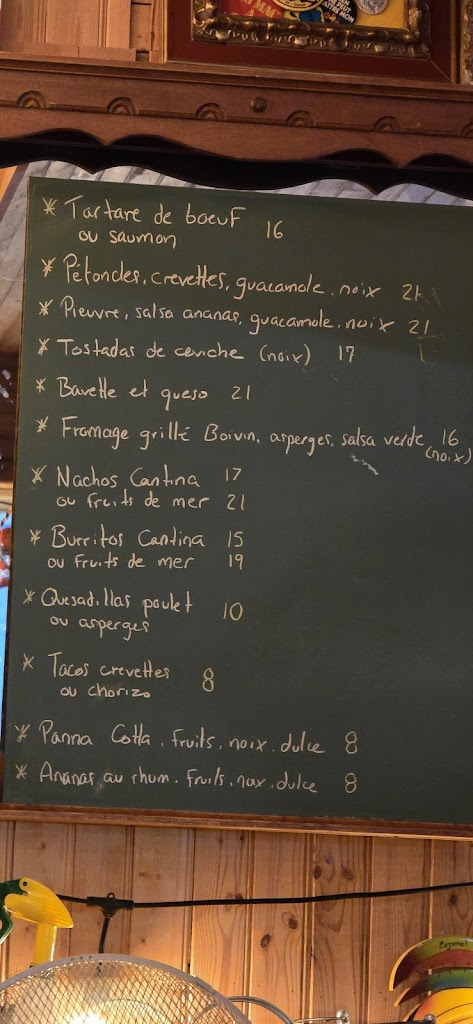 * Tartare de boeuf 16
ou saumon
* Pétoncles, crevettes, guacamole, noix 21
* Pieuvre, salsa ananas, guacamole, noix 21
* Tostadas de ceviche (noix) 17
* Bavette et queso 21
* Fromage grillé Boivin, asperges, salsa verde 16
(noix)
* Nachos Cantina 17
ou fruits de mer 21
* Burritos Cantina 15
ou fruits de mer 19
* Quesadillas poulet 10
ou asperges
* Tacos crevettes 8
ou chorizo
* Panna Cotta, fruits, noix, dulce 8
* Ananas au rhum, fruits, noix, dulce 8